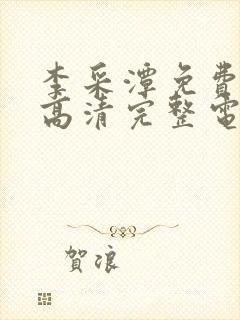 李采潭免費
高清完整電
賀浪